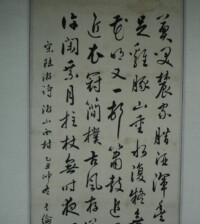 莫笑農家腊酒渾
足雞豚山重水復疑
花明又一村簫鼓追
近衣冠簡樸古風存
許閑乘月拄杖無時夜
宋陸游詩游山西村